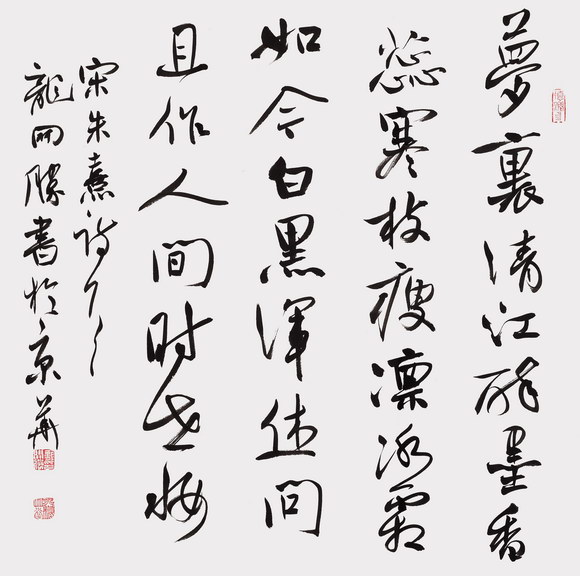 夢裏清江醉墨香
蕊寒枝瘦凛冰霜
如今白黑渾休問
且作人間时世妆
宋朱熹詩
龍開勝書於京華